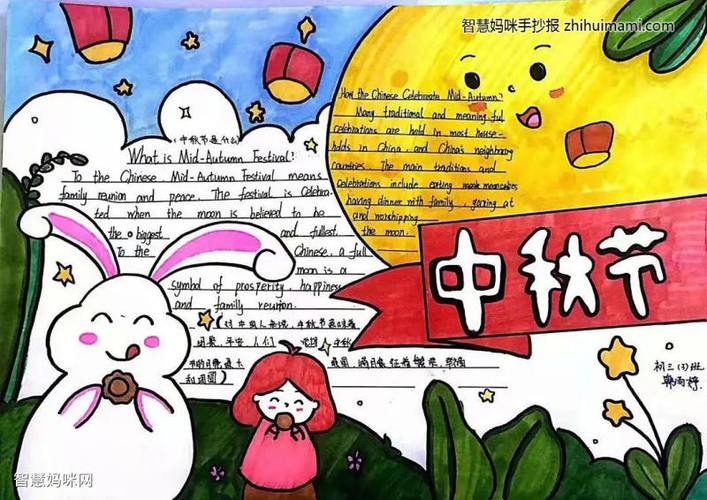 智慧妈咪手抄报 zhihuimami.com
(中秋节是什么)
What is Mid-Autumn Festival?
To the Chinese Mid-Autumn Festival means
family reunion and peace. The festival is celebra-
ted when the moon is believed to be
the biggest and fullest.
To the Chinese, a full
moon is a
symbol of prosperity, happiness
and family reunion.
(对中国人来说,中秋节意味着
团聚,平安
中秋
满月象征着繁荣,幸福
和团圆)
How the Chinese Celebrate Mid-Autumn?
Many traditional and meaningful
celebrations are held in most house-
holds in China, and China's neighboring
countries. The main traditions and
celebrations include eating mooncakes
having dinner with family, gazing at
and worshipping
the moon.
中秋节
初三(3)班
智慧妈咪网